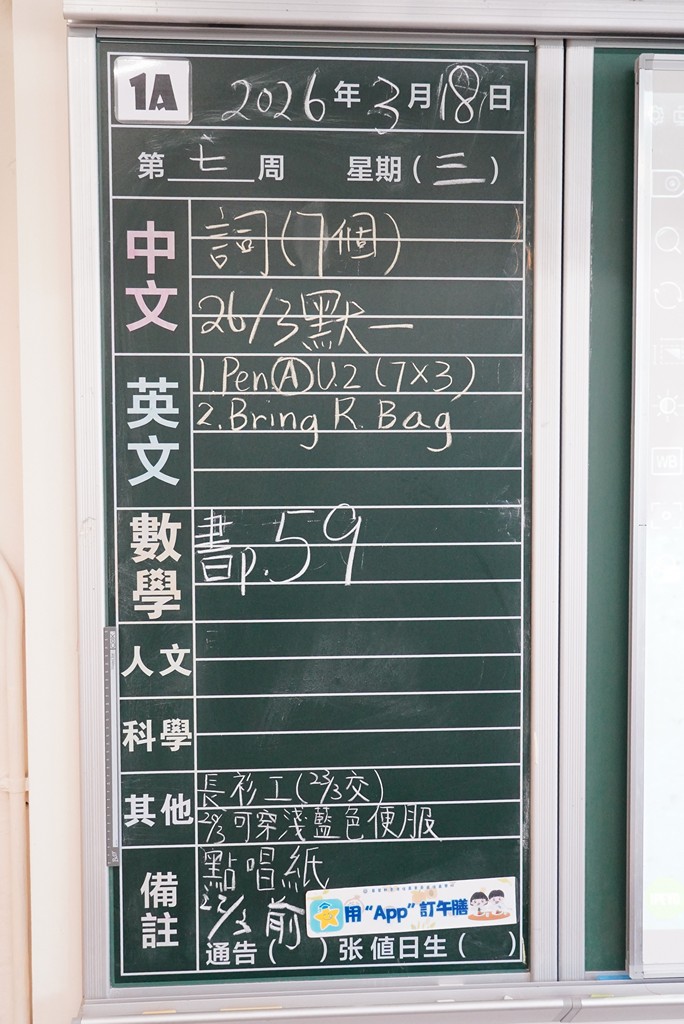 1A 2026年3月18日
第七周 星期(三)
中文
詞(7個)
26/3默一
英文
1. Pen.Ⓐ U.2 (7×3)
2. Bring R. Bag
數學
書p.59
人文
科學
其他
長衫工(23/3交)
20/3可穿淺藍色便服
備註
點唱紙
22/3前
用“App”訂午膳
通告( )张 值日生( )
WB